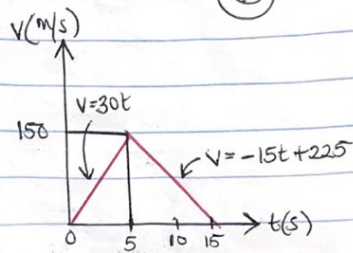 V(m/s)
V=30t
150
V=-15t+225
t(s)
0 5 10 15